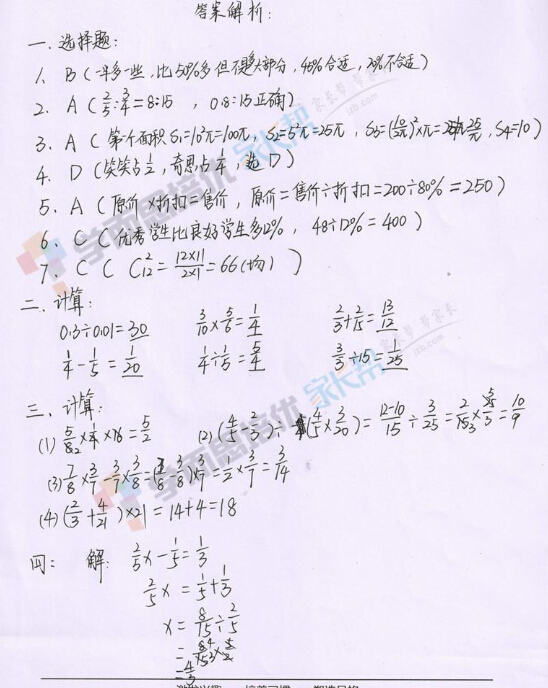 答案解析:
一、选择题:
1、B(一半多一些,比50%多但不是大部分,45%合适,70%不合适)
2、A(2/5:3/4=8:15, 0.8:15正确)
3、A(第一个面积S1=10²π=100π, S2=5²π=25π, S4=10)
4、D(笑笑占1/2,奇思占1/4,选D)
5、A(原价×折扣=售价,原价=售价÷折扣=200÷80%=250)
6、C(优秀学生比良好学生多12%, 48÷12%=400)
7、C C²₁₂=12×11/2×1=66(场))
二、计算:
0.3÷0.01=30 3/10×5/6=1/4 2/3+2/15=13/12
1/4-1/5=1/20 1/4÷1/5=5/4 3/3÷15=1/25
三、计算:
(1) 5/82×1/4×16=5/2 (2)(4/5-2/3)÷(4/5×3/20)=12-10/15÷3/25=2/153×5/3=10/9
(3)7/8×3/7-3/7×3/8=(7/8-3/8)×3/7=1/2×3/7=3/14
(4)(2/3+4/21)×21=14+4=18
四: 解: 2/5x-1/5=1/3
2/5x=1/5+1/3
x=8/15÷2/5
=84/153×5/2
=4/3
学而思培优
家长帮
家长帮 帮家长
jzb.com